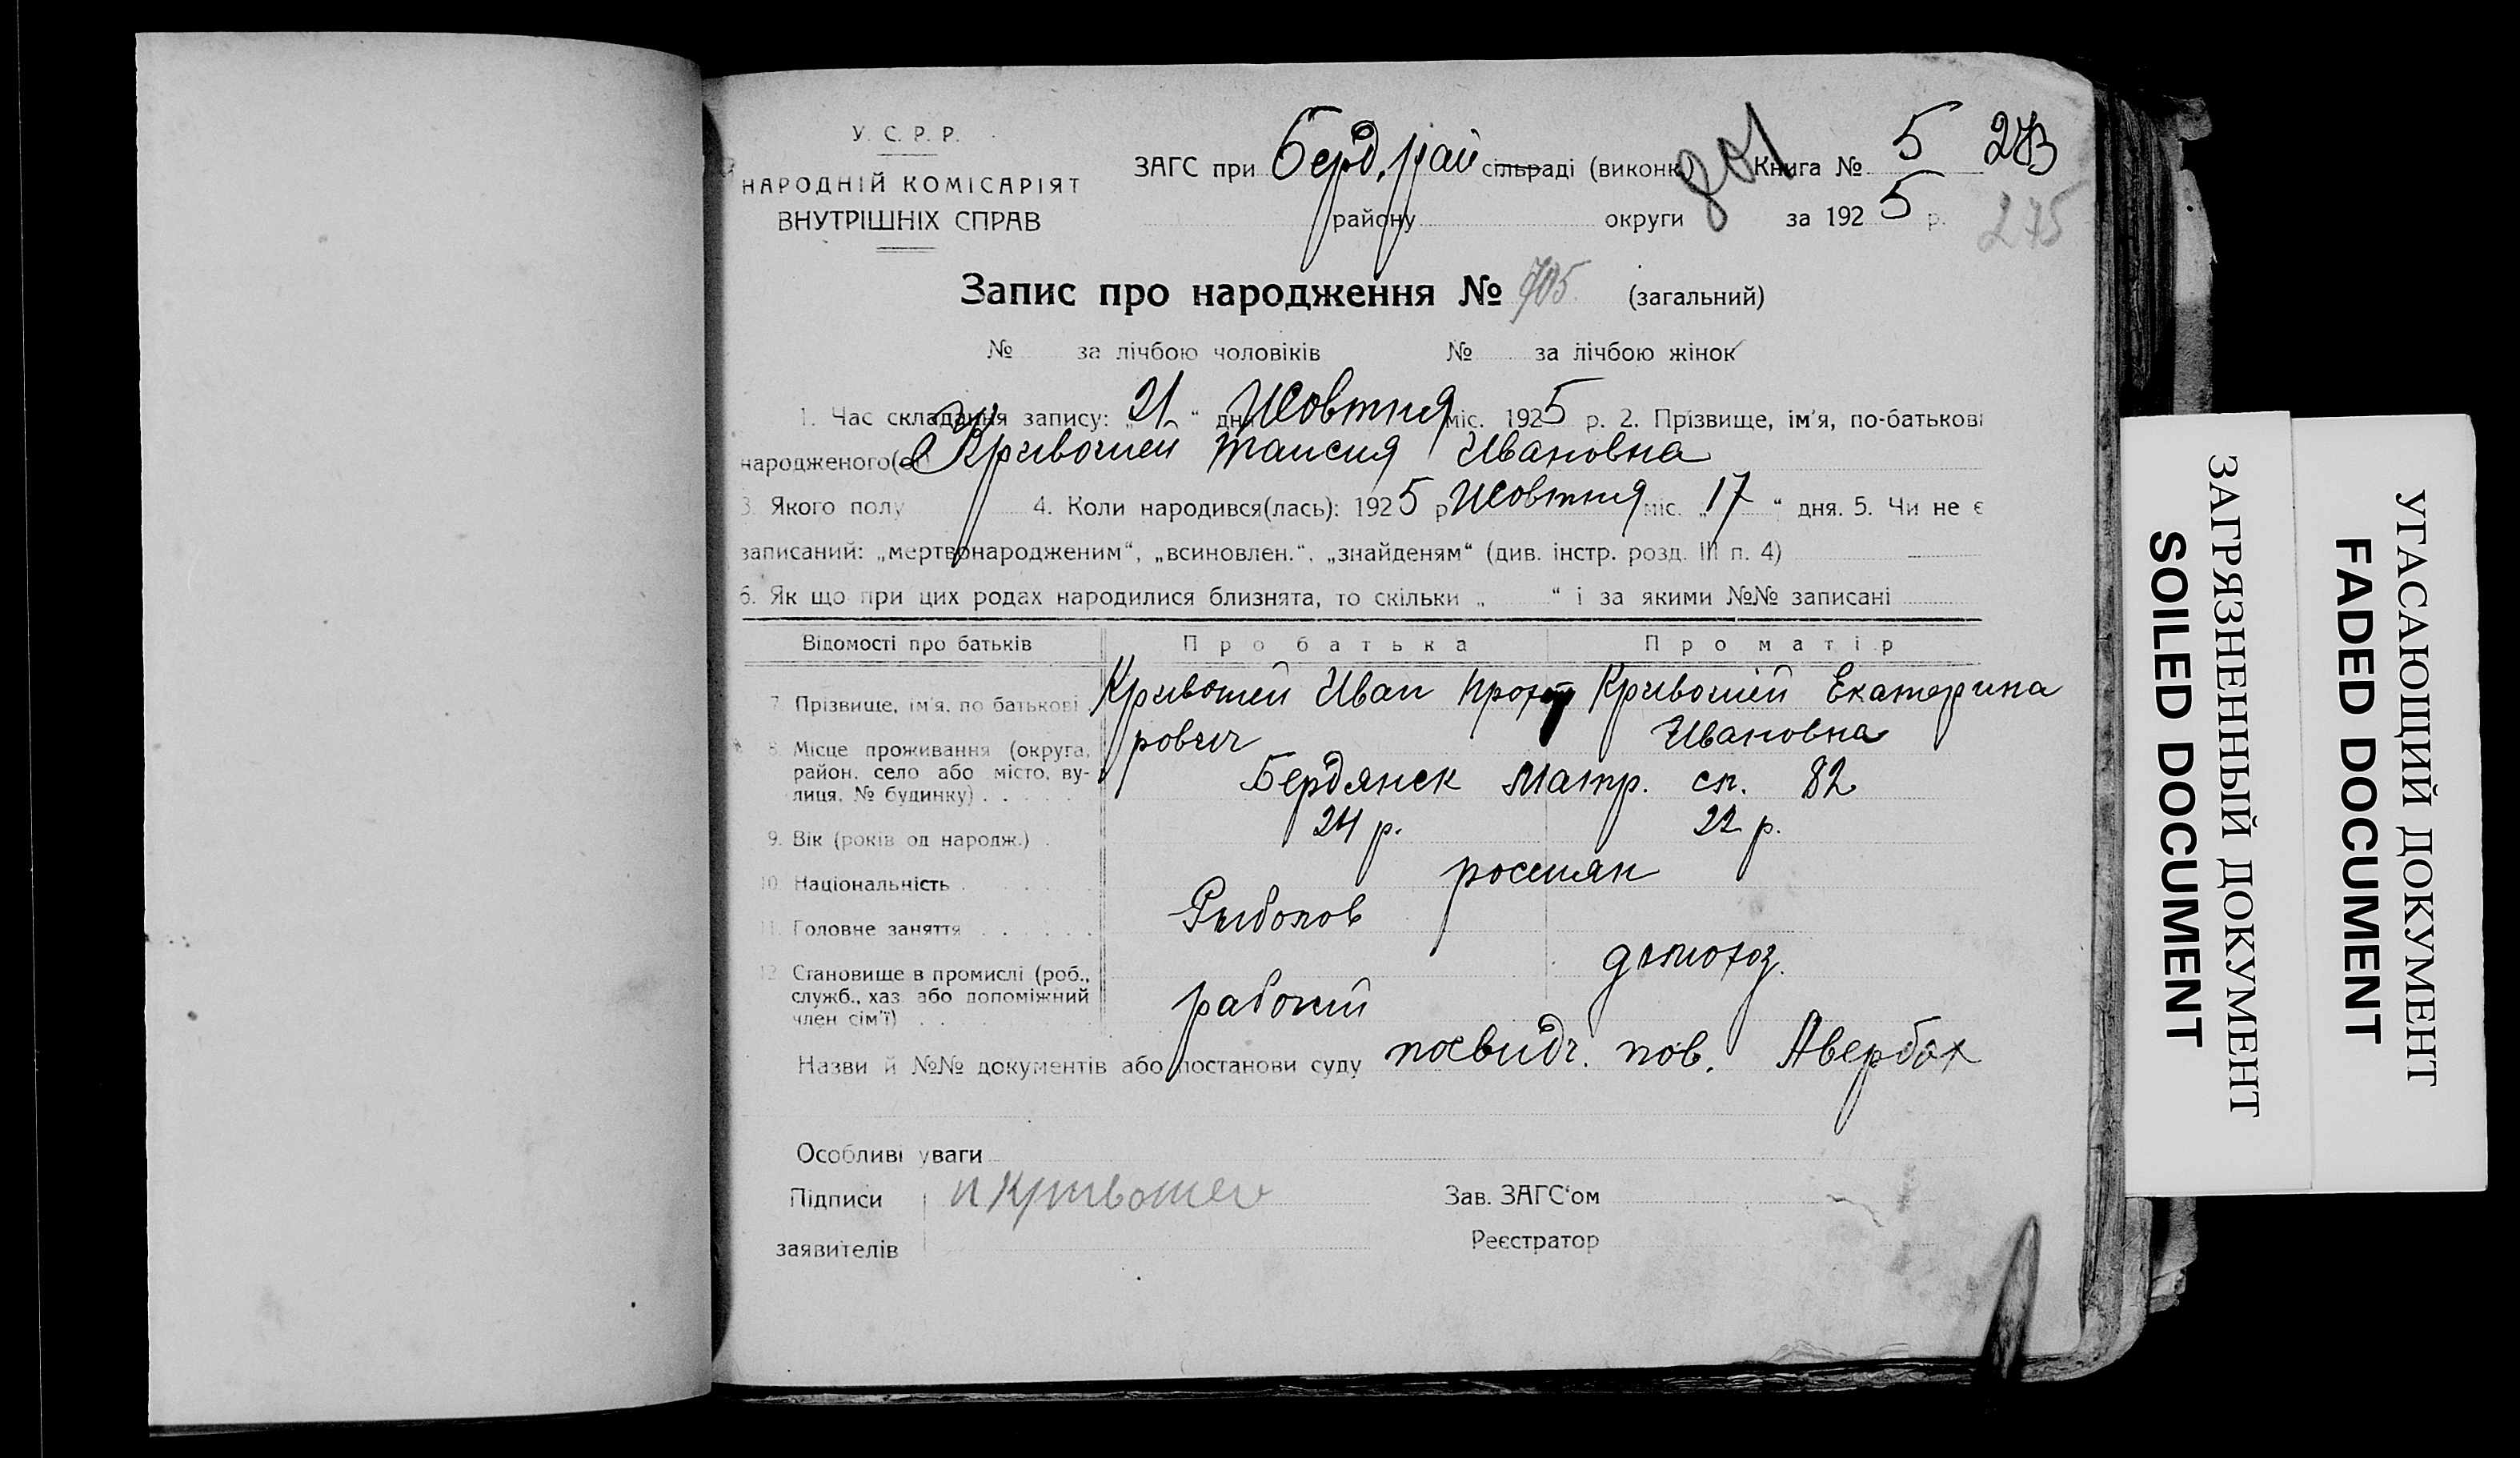 У. С. Р. Р.
НАРОДНІЙ КОМІСАРІЯТ
ВНУТРІШНІХ СПРАВ
ЗАГС при Берд. рай сільраді (виконк.) Книга № 5 273
району округи за 1925 р. 275
Запис про народження № 705 (загальний)
№ за лічбою чоловіків № за лічбою жінок
1. Час складання запису: „21“ дня Жовтня міс. 1925 р. 2. Прізвище, ім'я, по-батькові
народженого(ої) Кривошей Таисия Ивановна
3. Якого полу 4. Коли народився(лась): 1925 р Жовтня міс. „17“ дня. 5. Чи не є
записаний: „мертвонародженим“, „всиновлен.“, „знайденям“ (див. інстр. розд. III п. 4)
6. Як що при цих родах народилися близнята, то скільки „ “ і за якими №№ записані
Відомості про батьків Про батька Про матір
7. Прізвище, ім'я, по батькові Кривошей Иван Кривошей Екатерина
Ивановна
8. Місце проживання (округа,
район, село або місто, ву-
лиця, № будинку) Бердянск Матр. сп. 82
9. Вік (років од народж.) 24 р. 22 р.
10. Національність россиян
11. Головне заняття Рыболов
домохоз.
12. Становище в промислі (роб.,
служб., хаз. або допоміжний
член сім'ї) рабочий
Назви й №№ документів або постанови суду посвидч. пов. Авербах
Особливі уваги
Підписи Кривошей Зав. ЗАГС'ом
заявителів Реєстратор
ЗАГРЯЗНЕННЫЙ ДОКУМЕНТ
SOILED DOCUMENT
УГАСАЮЩИЙ ДОКУМЕНТ
FADED DOCUMENT